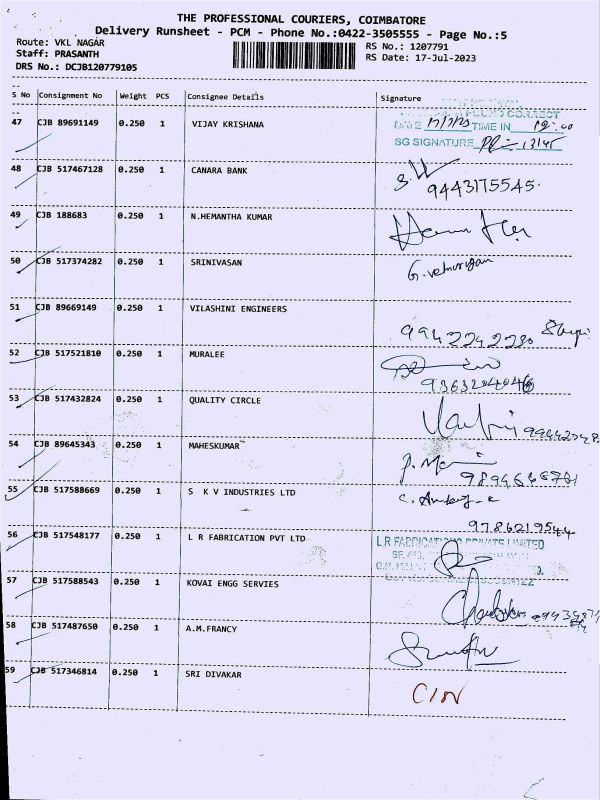 THE PROFESSIONAL COURIERS, COIMBATORE
Delivery Runsheet - PCM - Phone No.:0422-3505555 - Page No.:5
Route: VKL NAGAR
RS No.: 1207791
Staff: PRASANTH
RS Date: 17-Jul-2023
DRS No.: DCJB120779105
S No Consignment No Weight PCS Consignee Details Signature
47 CJB 89691149 0.250 1 VIJAY KRISHANA
DATE 17/7/23 TIME IN
SG SIGNATURE
48 CJB 517467128 0.250 1 CANARA BANK
9443175545
49 CJB 188683 0.250 1 N.HEMANTHA KUMAR
50 CJB 517374282 0.250 1 SRINIVASAN
51 CJB 89669149 0.250 1 VILASHINI ENGINEERS
9942242230
52 CJB 517521810 0.250 1 MURALEE
53 CJB 517432824 0.250 1 QUALITY CIRCLE
54 CJB 89645343 0.250 1 MAHESKUMAR
55 CJB 517588669 0.250 1 S K V INDUSTRIES LTD
9786219544
56 CJB 517548177 0.250 1 L R FABRICATION PVT LTD
L R FABRICATIONS PRIVATE LIMITED
57 CJB 517588543 0.250 1 KOVAI ENGG SERVIES
58 CJB 517487650 0.250 1 A.M.FRANCY
59 CJB 517346814 0.250 1 SRI DIVAKAR